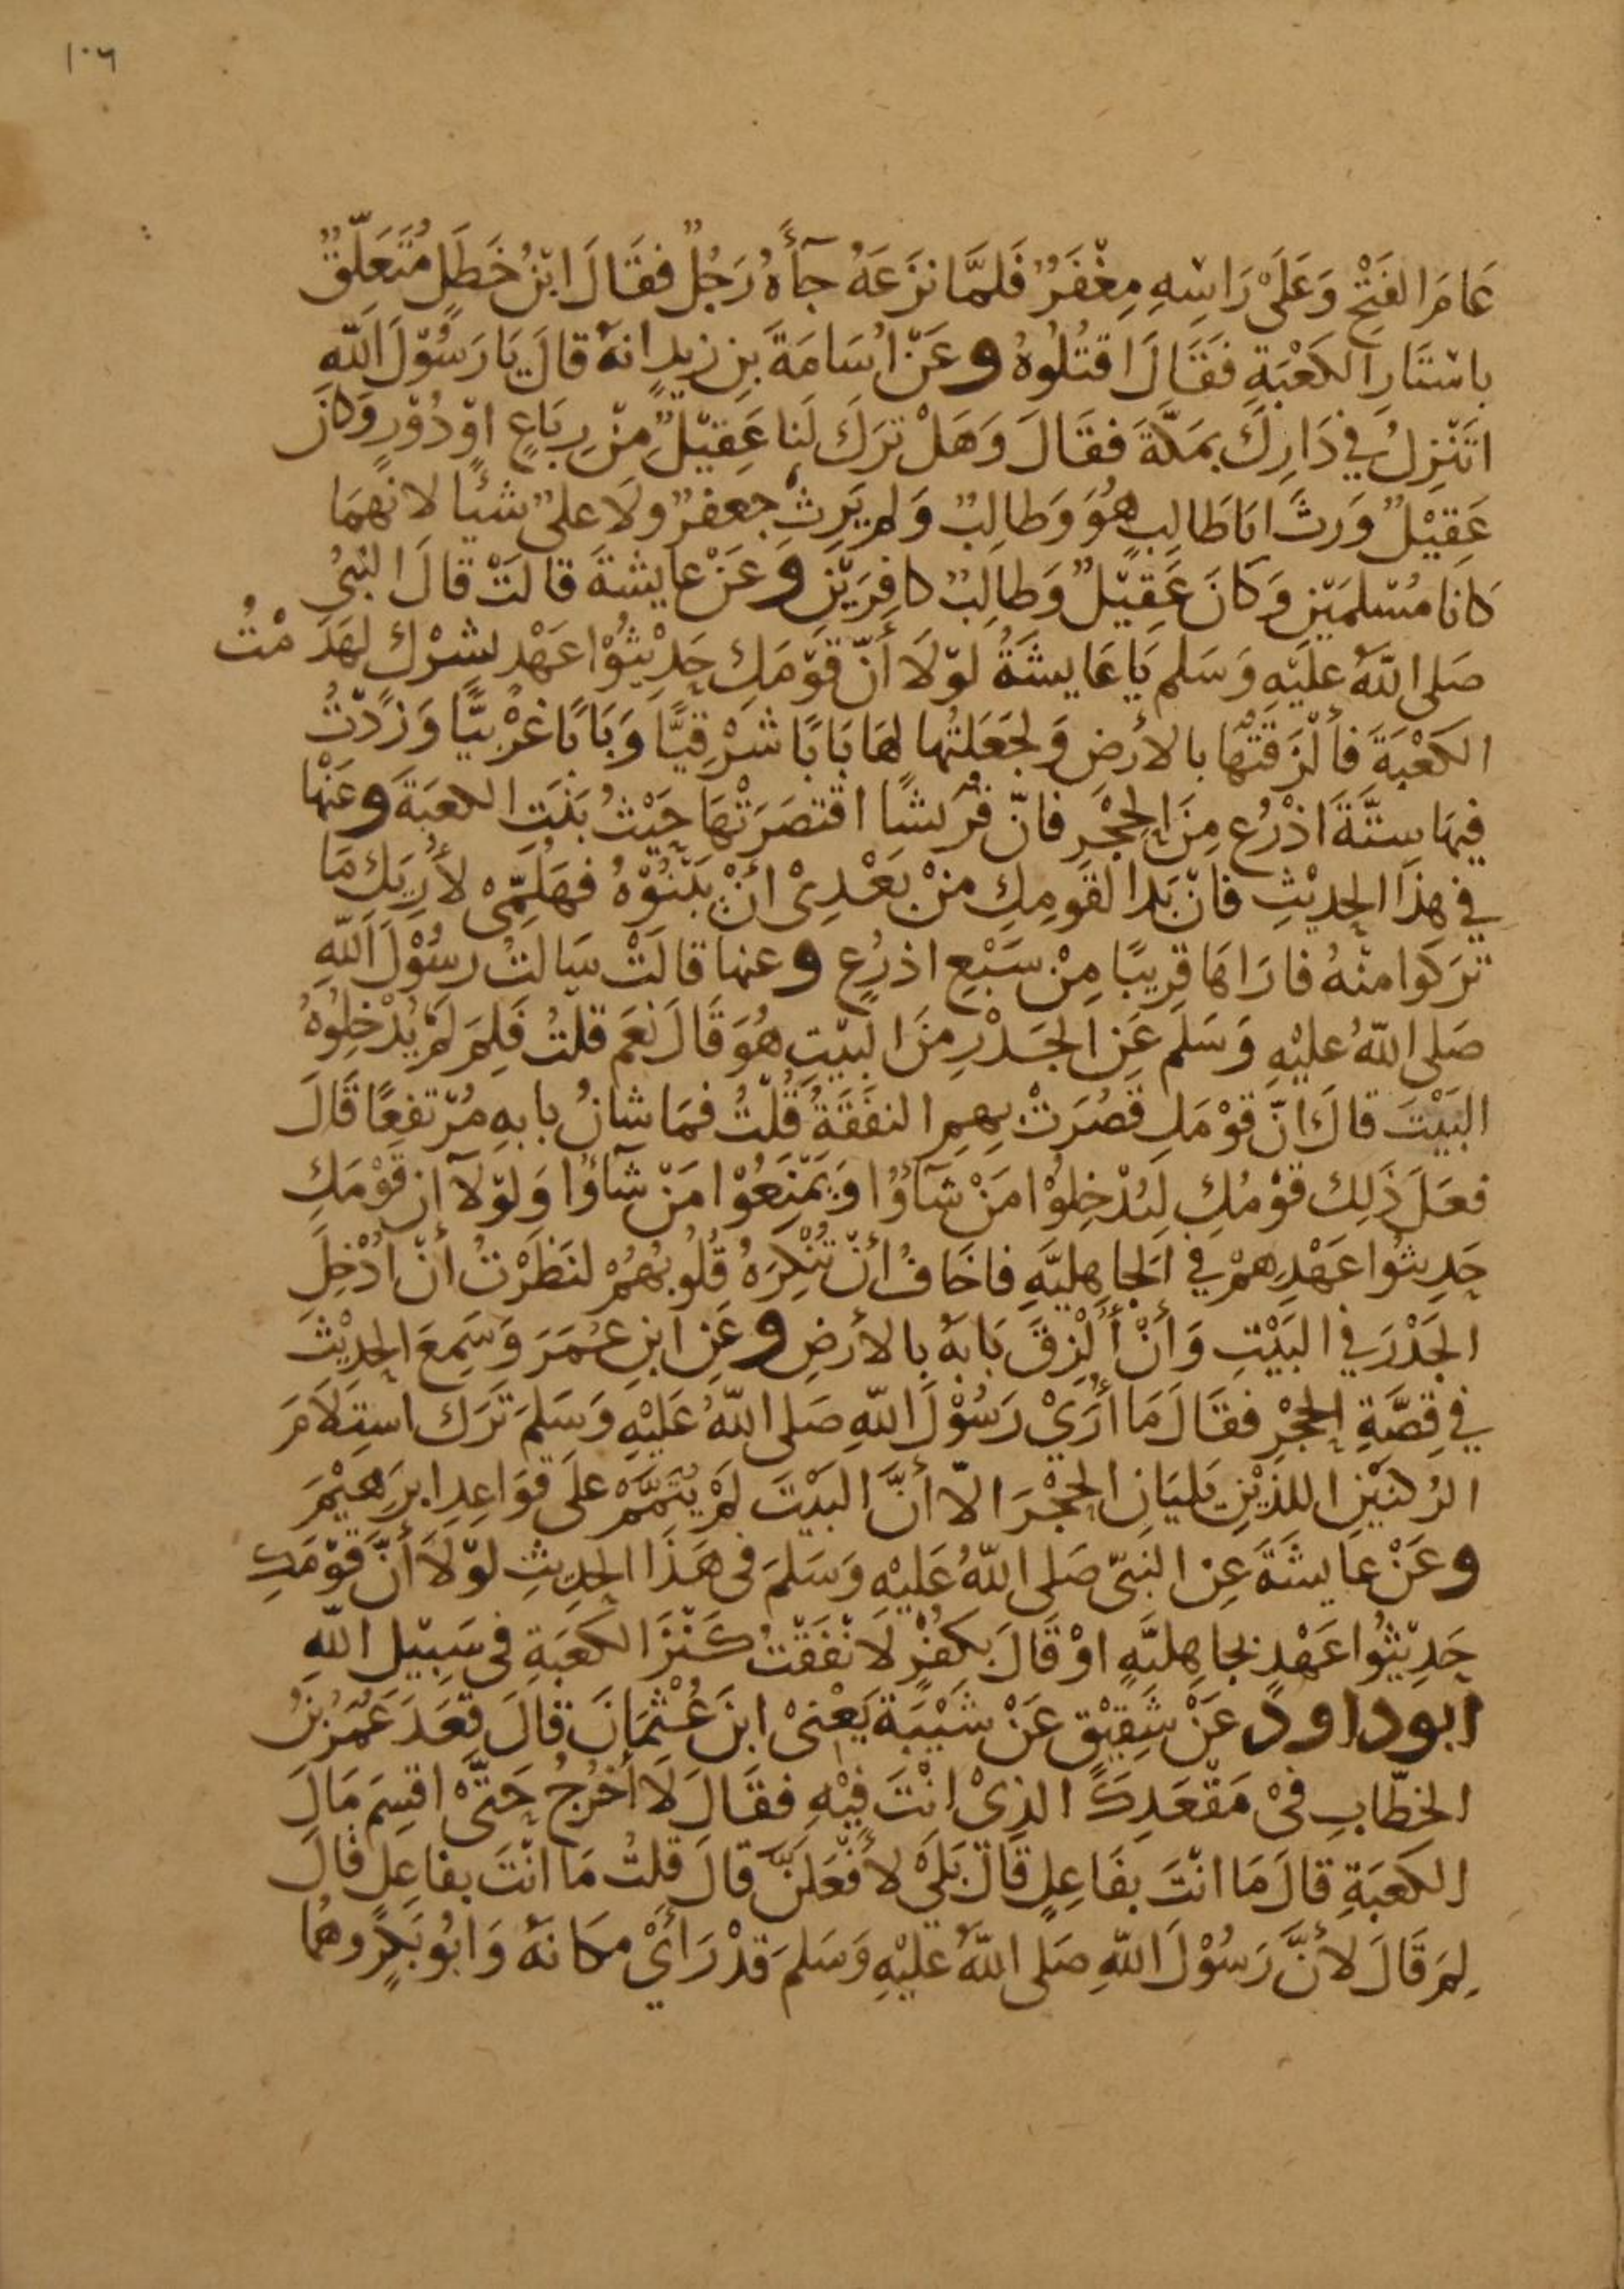 ١٠٦
عَامَ الفَتْحِ وَعَلَىْ رَاسِهِ مِغْفَرٌ فَلَمَّا نَزَعَهُ جآءَهُ رَجُلٌ فقَالَ ابْنُ خَطَلٍ مُتَعَلِّقٌ
باسْتَارِ الكَعْبَةِ فَقَالَ اقتُلُوهُ وعَنْ اُسَامَةَ بنِ زيدٍ انهُ قالَ يَا رَسُوْلَ اللّهِ
اتَنْزِلُ في دَارِكَ بمَكّةَ فقَالَ وَهَلْ ترَكَ لَنا عَقِيْلٌ مِنْ رِبَاعٍ اوْ دُوْرٍ وَكانَ
عَقِيْلٌ وَرثَ ابَا طَالِبٍ هُوَ وَطالِبٌ وَلم يَرِثْ جعفرٌ ولَا علىٌ شيئًا لانهمَا
كانا مُسْلمَيْنِ وَكانَ عَقِيْلٌ وَطالِبٌ كافِرَيْنِ وعَنْ عايشةَ قالَتْ قالَ النبىُ
صَلى اللّهُ علَيْهِ وَسَلم يَا عَايشَةُ لوْلَا أنّ قوْمَكِ حَدِيْثُوْا عَهْدٍ بشِرْكٍ لهَدَمْتُ
الكَعْبَةَ فألْزَقتُهَا بالأرضِ وَلجَعَلتُها لهَا بَابًا شَرْقِيًّا وَبَابًا غَرْبيًّا وَزَدْتُ
فيهَا سِتَّةَ اذْرُعٍ مِنَ الحِجْرِ فانّ قُرَيشًا اقتصَرَتْهَا حَيْثُ بَنَتِ الكعبَةَ وعَنْها
في هذَا الحدِيْثِ فَانْ بَدا لقَومِكِ مِنْ بَعْدِىْ انْ يَبْنُوْهُ فهَلُمِّى لأُرِيَكِ مَا
ترَكوا منْهُ فارَاهَا قرِيبًا مِنْ سَبْعِ اذرُعٍ وعنها قالَتْ سَالتُ رسُوْلَ اللّهِ
صَلى اللّهُ عليْهِ وَسَلم عَنِ الجَدْرِ مِنَ البيْتِ هُوَ قَالَ نعَم قلتُ فَلِمَ لَمْ يُدْخِلُوهُ
البَيْتَ قالَ انّ قوْمَكِ قصُرَتْ بِهِمِ النفَقَةُ قُلْتُ فمَا شانُ بابهِ مُرْتفِعًا قالَ
فعَلَ ذَلِكَ قوْمُكِ لِيُدْخِلُوْا مَنْ شَآؤُا وَيَمْنَعُوْا مَنْ شآؤُا وَلوْلآ ان قوْمَكِ
حَدِيثُوا عَهْدِهِمْ في الجاهِليَّةِ فاخَافُ أنْ تُنْكِرَهُ قُلُوبُهُمْ لنَظَرْتُ أنْ أدْخِلَ
الجَدْرَ في البَيْتِ وَأنْ أُلْزِقَ بَابهُ بالأرضِ وعَنِ ابنِ عُمَرَ وَسَمِعَ الحديْثَ
في قِصَّةِ الحِجْرِ فقَالَ مَا أُرَىْ رَسُوْلَ اللّهِ صَلى اللّهُ عَلَيْهِ وَسَلمَ تَرَكَ استِلَامَ
الرُكنَيْنِ اللذَيْنِ يَليَانِ الحِجْرَ الّا أنَّ البَيْتَ لمْ يُتَمَّمْ علَى قوَاعِدِ ابرَهيْمَ
وعَنْ عايشَةَ عنِ النبىّ صَلى اللّهُ عَليْهِ وَسَلمَ فى هَذَا الحدِيثِ لوْلَا أنَّ قوْمَكِ
حَدِيْثُوا عَهْدٍ بجاهِليَّةٍ اوْ قَالَ بكُفْرٍ لَانْفَقْتُ كَنْزَ الكعْبَةِ فى سَبِيْلِ اللّهِ
ابوداودَ عَنْ شَقِيْقٍ عَنْ شَيْبَةَ يَعْنِىْ ابنَ عُثْمَانَ قالَ قعَدَ عُمَرُ بنُ
الخطّابِ فىْ مَقْعَدِكَ الذِىْ انْتَ فِيْهِ فقَالَ لَا أخرُجُ حَتَّىْ اقسِمَ مَالَ
الكَعْبَةِ قالَ مَا انْتَ بفَاعِلٍ قالَ بَلَىْ لأفْعَلَنَّ قالَ قلتُ مَا انْتَ بفاعِلٍ قالَ
لِمَ قَالَ لأنَّ رَسُوْلَ اللّهِ صَلى اللّهُ عليْهِ وَسَلمَ قدْ رَأىْ مكانهُ وَابُو بَكرٍ وهُما